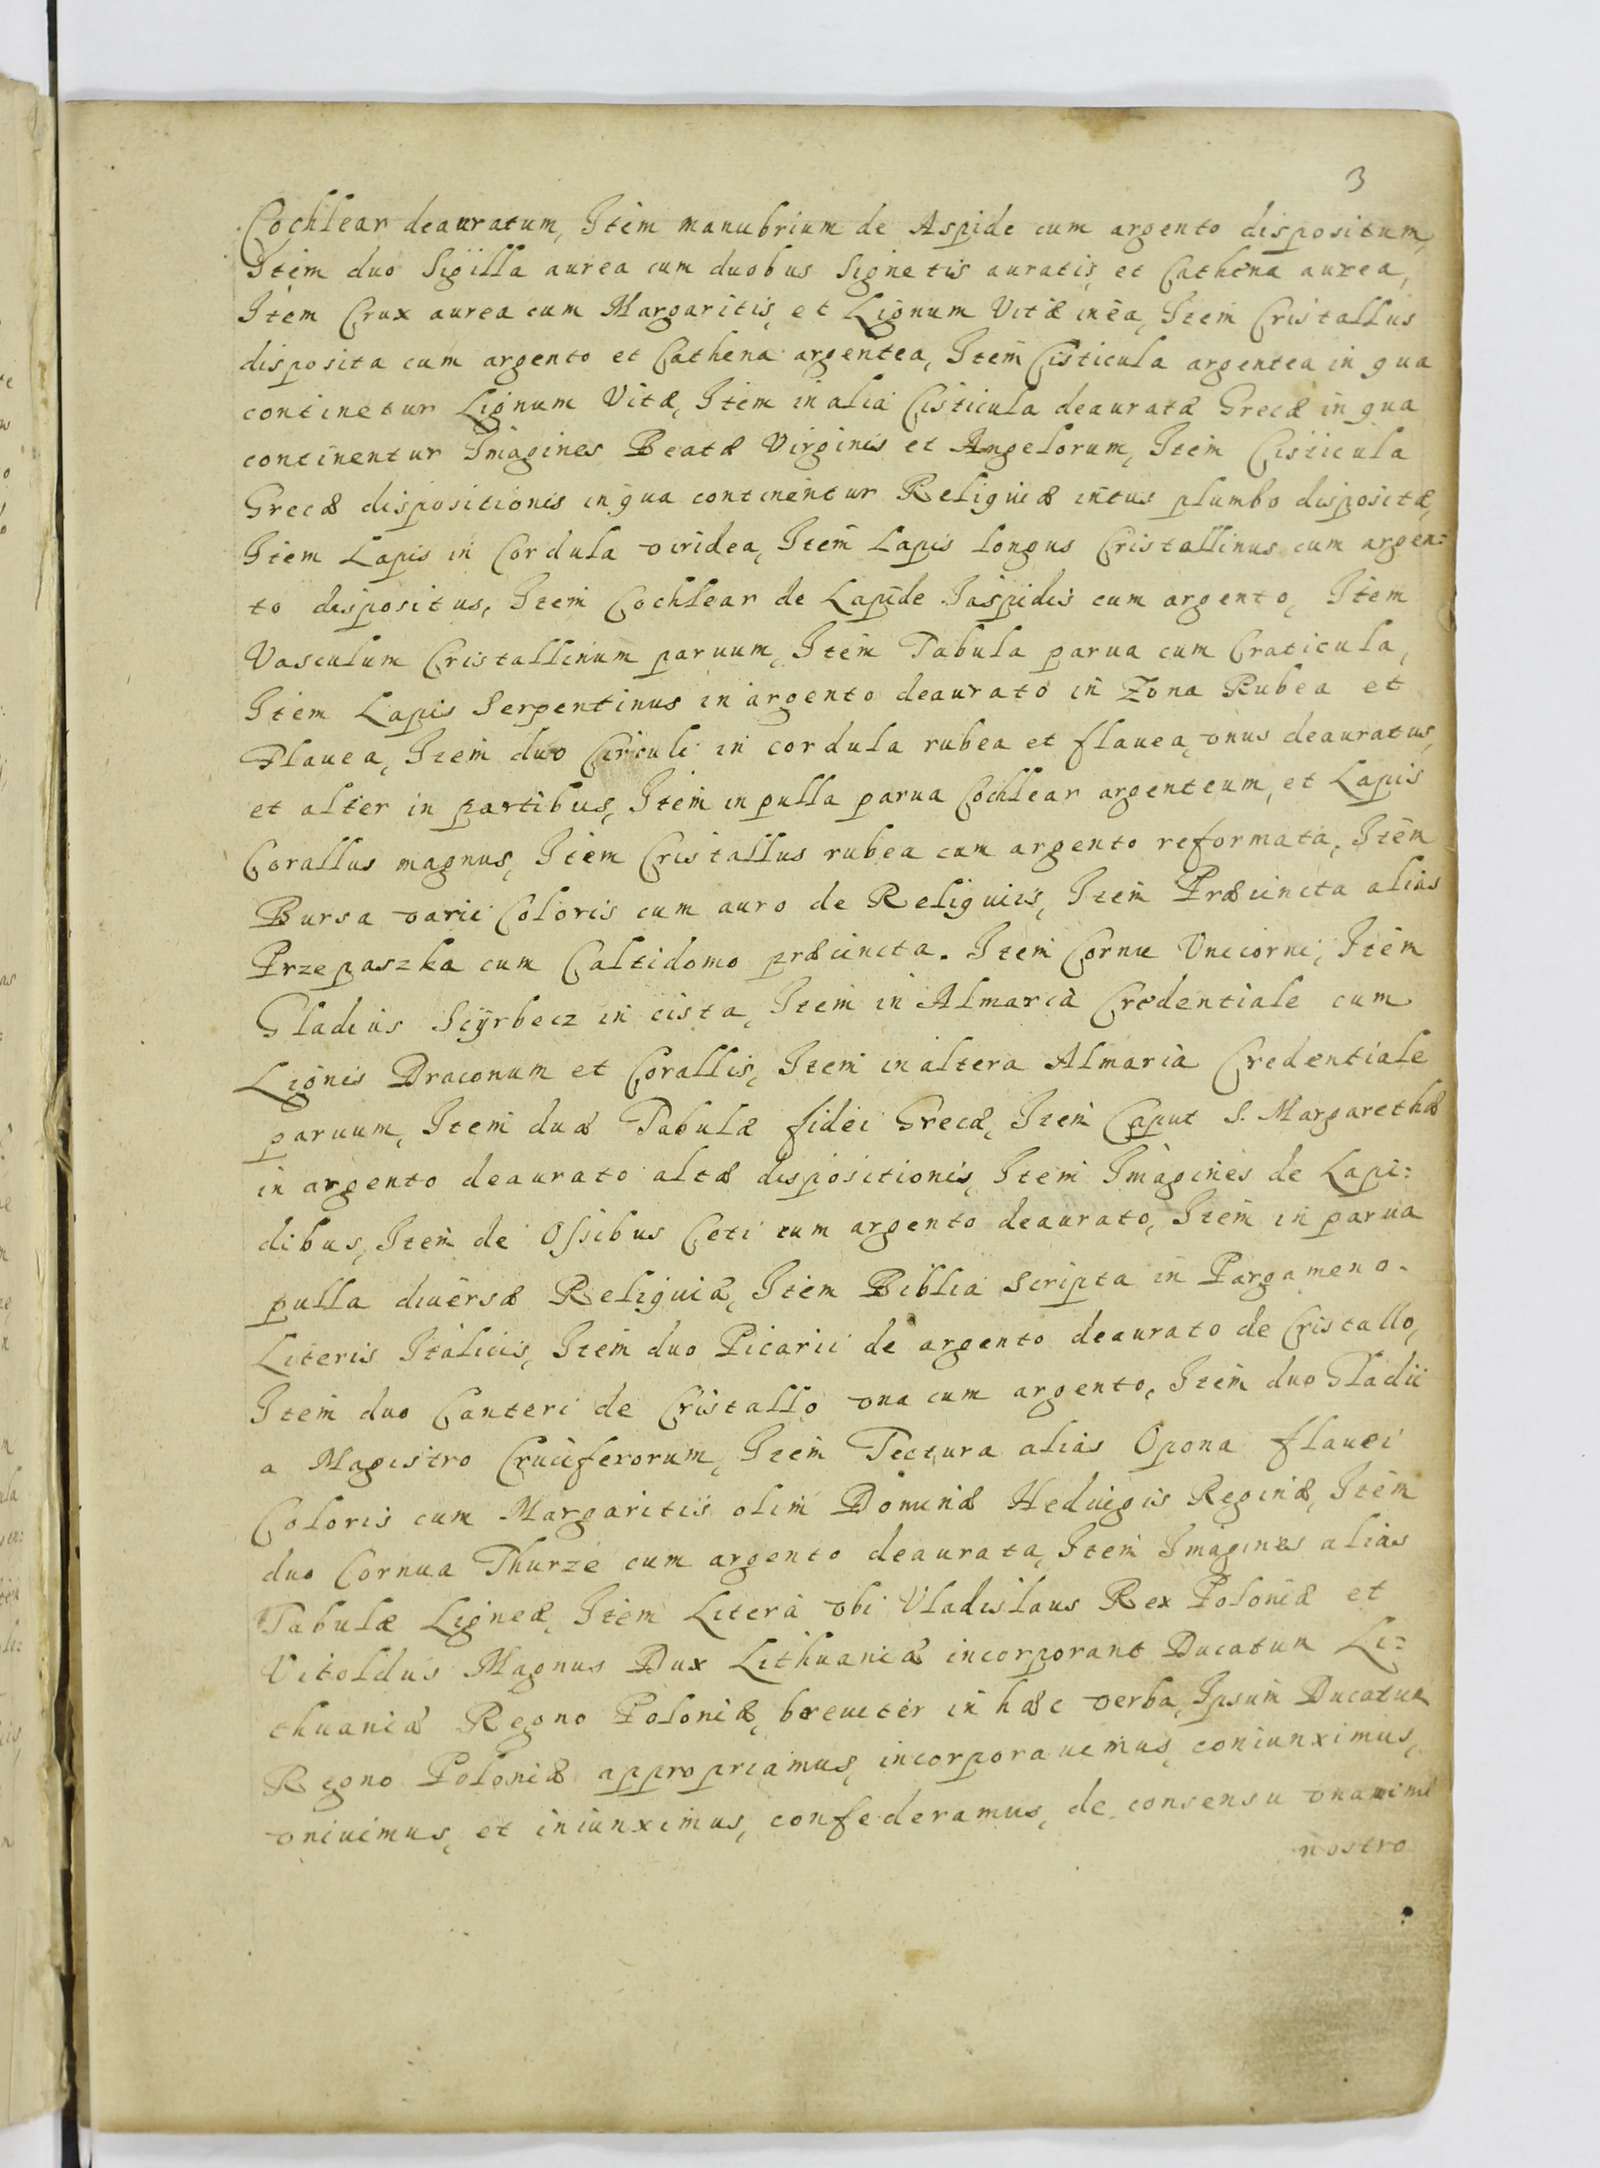 3
Cochlear deauratum, Item manubrium de Aspide cum argento dispositum,
Item duo Sigilla aurea cum duobus Signetis auratis, et Cathena aurea,
Item Crux aurea cum Margaritis, et Lignum Vitæ in ea, Item Cristallus
disposita cum argento et Cathena argentea, Item Cisticula argentea in qua
continetur Lignum Vitæ, Item in alia Cisticula deauratæ Grecæ in qua
continentur Imagines Beatæ Virginis et Angelorum, Item Cisticula
Grecæ dispositionis in qua continentur Reliquiæ intus plumbo dispositæ,
Item Lapis in Cordula viridea, Item Lapis longus Cristallinus cum argen:
to dispositus, Item Cochlear de Lapide Iaspidis cum argento, Item
Vasculum Cristallinum paruum, Item Tabula parua cum Craticula,
Item Lapis Serpentinus in argento deaurato in Zona Rubea et
Flauea, Item duo Circuli in cordula rubea et flauea, vnus deauratus,
et alter in partibus, Item in pulla parua Cochlear argenteum, et Lapis
Corallus magnus, Item Cristallus rubea cum argento reformata, Item
Bursa varii Coloris cum auro de Reliquiis, Item Præcincta alias
Przepaszka cum Caltidomo præcincta. Item Cornu Vnicorni, Item
Gladius Sczyrbecz in cista, Item in Almaria Credentiale cum
Lignis Draconum et Corallis, Item in altera Almaria Credentiale
paruum, Item duæ Tabulæ fidei Grecæ, Item Caput S. Margarethæ
in argento deaurato altæ dispositionis, Item Imagines de Lapi:
dibus, Item de Ossibus Ceti cum argento deaurato, Item in parua
pulla diuersæ Reliquiæ, Item Biblia Scripta in Pargameno.
Literis Italicis, Item duo Picarii de argento deaurato de Cristallo,
Item duo Canteri de Cristallo vna cum argento, Item duo Gladii
a Magistro Cruciferorum, Item Tectura alias Opona flauei
Coloris cum Margaritis olim Dominæ Heduigis Reginæ, Item
duo Cornua Thurze cum argento deaurata, Item Imagines alias
Tabulæ Ligneæ, Item Litera vbi Vladislaus Rex Poloniæ et
Vitoldus Magnus Dux Lithuaniæ incorporant Ducatum Li:
thuaniæ Regno Poloniæ, breuiter in hæc verba, Ipsum Ducatum
Regno Poloniæ appropriamus, incorporauimus, coniunximus,
vniuimus, et iniunximus, confederamus, de consensu vnanimi
nostro